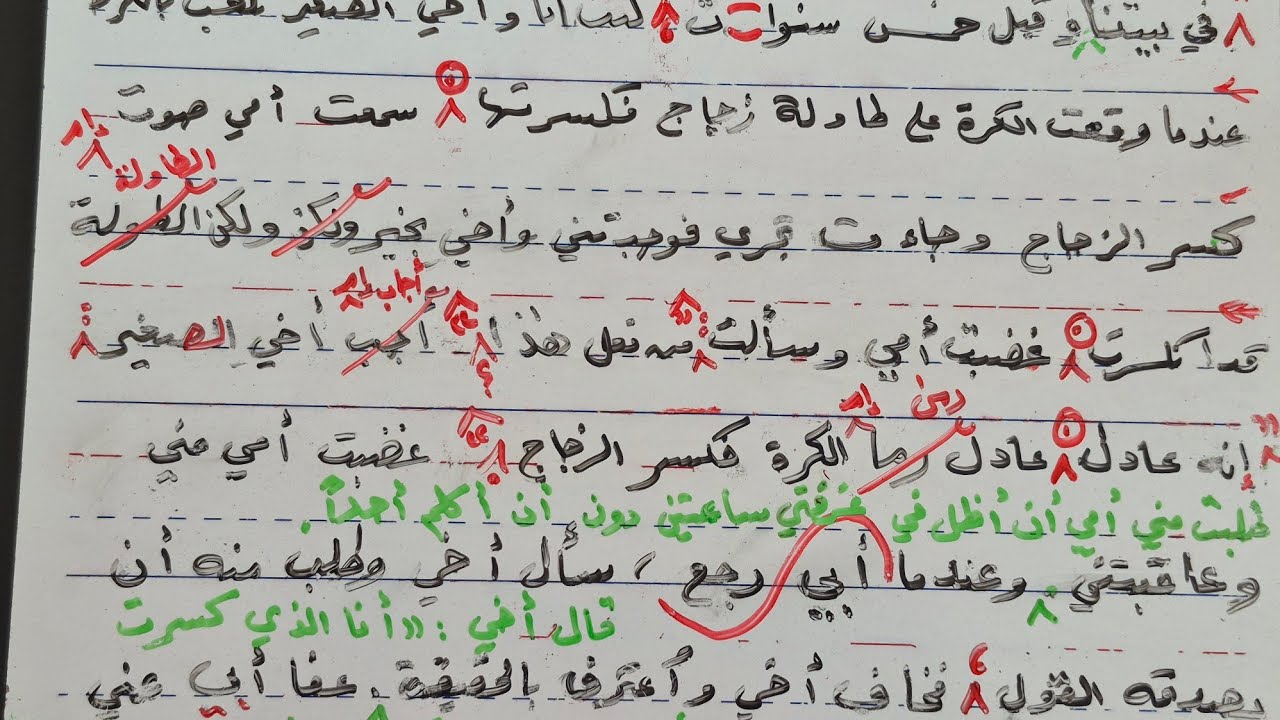 في بيتنا و قبل خمس سنوات كنت أنا وأخي الصغير نلعب بالكرة
عندما وقعت الكرة على طاولة زجاج فكسرتها سمعت أمي صوت
الطاولة
كسر الزجاج وجاءت تجري فوجدتني وأخي بخير ولكن الطولة
أجاب
قد انكسرت غضبت أمي وسألت من فعل هذا أجب أخي الصغير
رمى
إنه عادل عادل رما الكرة فكسر الزجاج غضبت أمي مني
طلبت مني أمي أن أظل في غرفتي ساعتين دون أن أكلم أحداً.
وعاقبتني وعندما أبي رجع ، سأل أخي وطلب منه أن
قال أخي : "أنا الذي كسرت
يصدقه القول فخاف أخي وأعترف بالحقيقة . عفا أبي عني